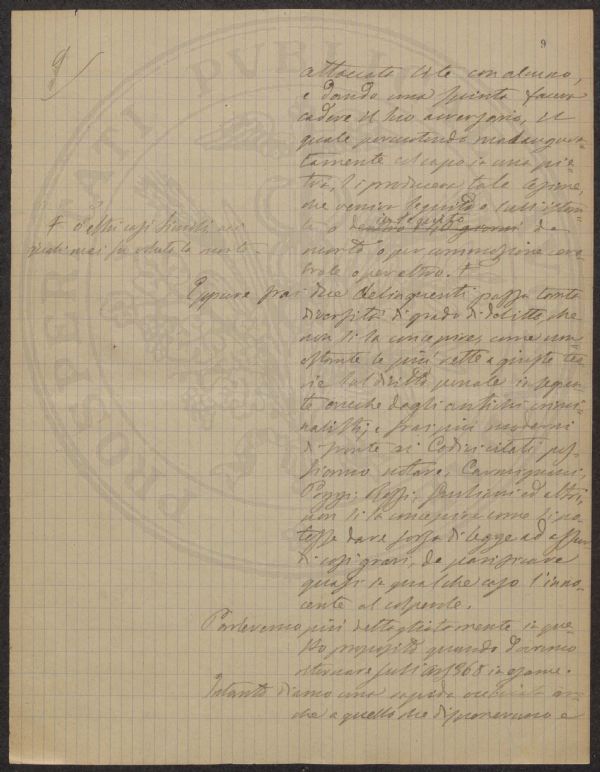 9
9
attaccato lite con alcuno,
e dando una spinta facesse
cadere il suo avversario, il
quale percuotendo malaugura-
tamente col capo in una pie-
tra, si producesse tale lesione,
che venisse seguito a
o dentro i 40 giorni da
in seguito
morte o per commozione cere-
brale o per altro. +
+ o altri casi simili nei
quali mai fu voluta la morte.
Eppure fra i due delinquenti passa tanta
diversità di grado di delitto, che
non si sa concepire, come non
ostante le più rette e giuste teo-
rie sul diritto penale insegna-
te anche dagli antichi crimi-
nalisti, e fra i più moderni
di fronte ai Codici citati pos-
siamo notare, Carmignani,
Poggi, Rossi, Giuliani ed altri,
non si sa concepire come si po-
tesse dare forza di legge ad
di così gravi, da parificare
quasi in qualche caso l'inno-
cente al colpevole.
Parleremo più dettagliatamente in que-
sto proposito quando dovremo
ritornare sull'art 568 in esame.
Intanto diamo una rapida occhiata an-
che a quello che disponevano e